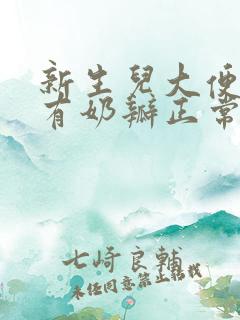 新生兒大便
有奶瓣正常
七崎良輔
未经同意禁止转载